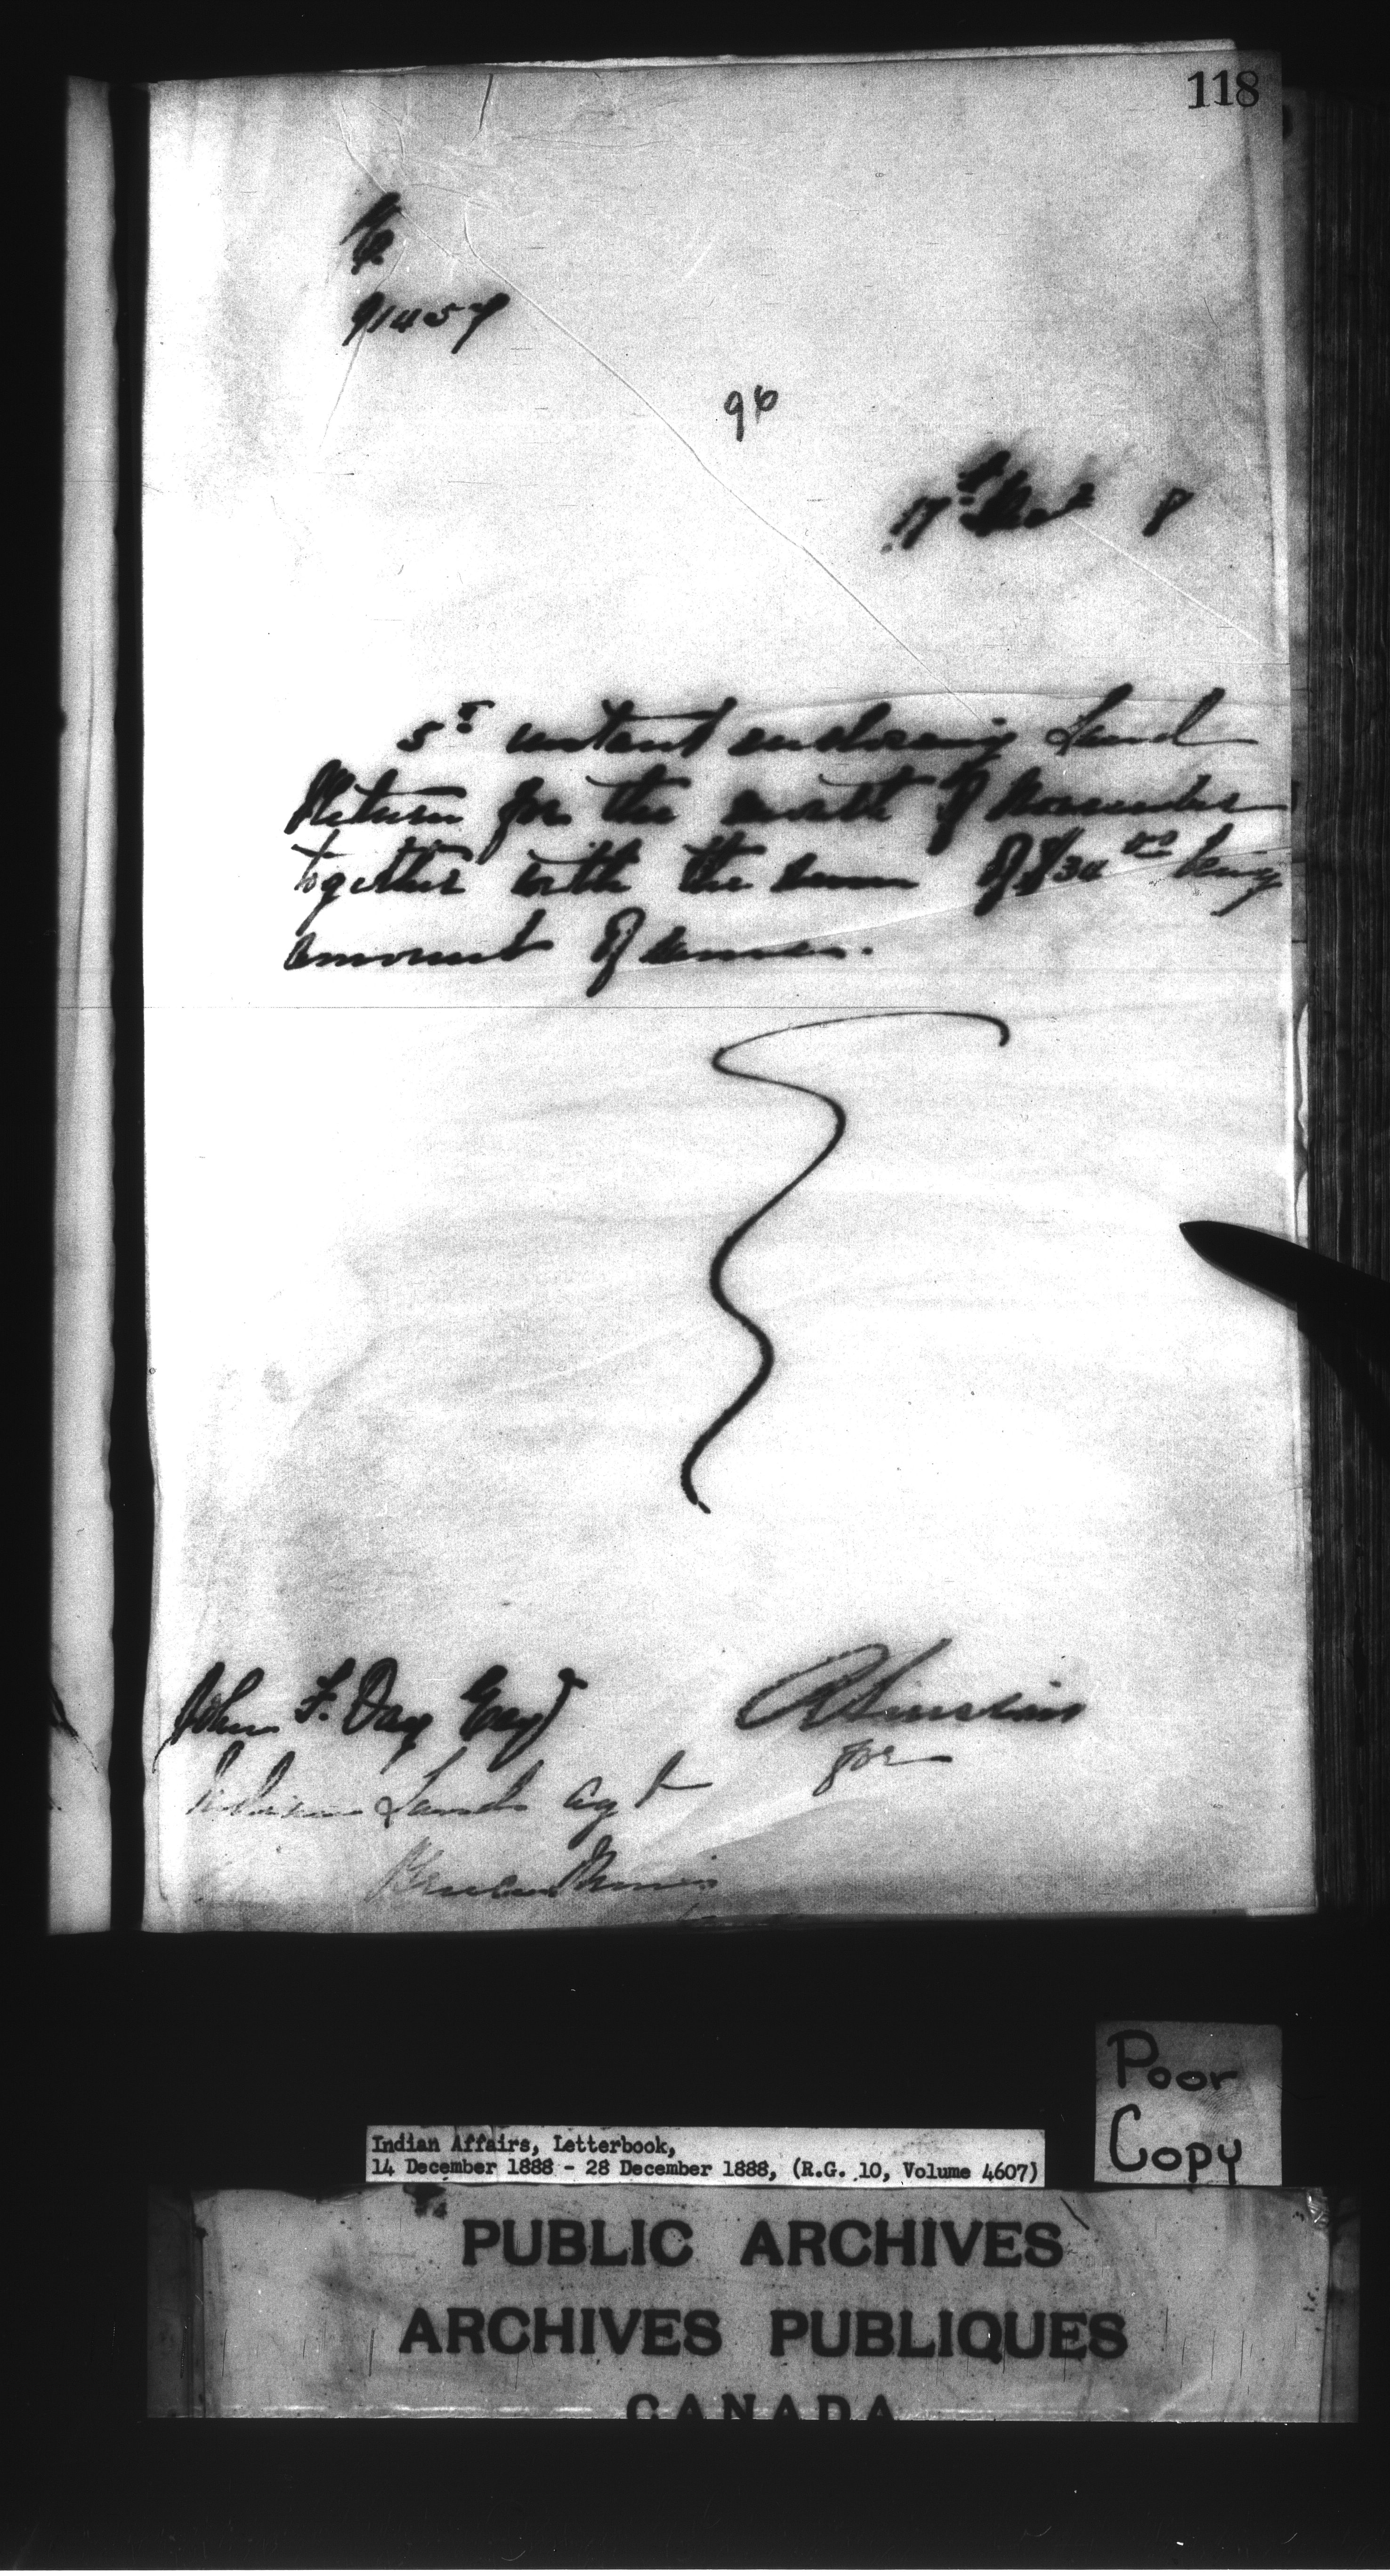 118
91457
96
17th Dec 8
5th instant enclosing Land
Return for the month of November
together with the sum of $30 00 being
amount of same.
John F. Day Esqr
RSinclair
for
Indian Lands Agt
Bruce Mines
Poor
Copy
Indian Affairs, Letterbook,
14 December 1888 - 28 December 1888, (R.G. 10, Volume 4607)
PUBLIC ARCHIVES
ARCHIVES PUBLIQUES
CANADA